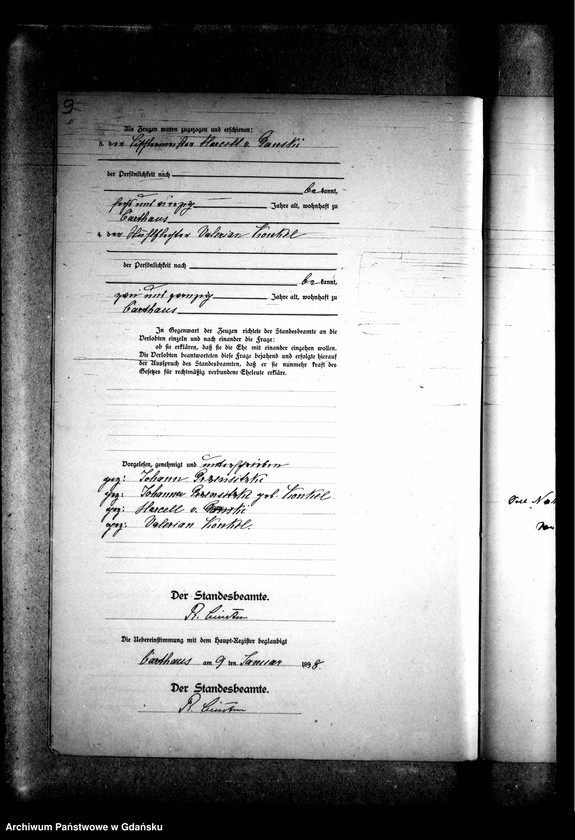 9
Als Zeugen waren zugezogen und erschienen:
der Marcell v.
der Persönlichkeit nach
be kannt,
sechs und vierzig Jahre alt, wohnhaft zu
Carthaus
der Valerian Konkel
der Persönlichkeit nach
be kannt,
zwei und zwanzig Jahre alt, wohnhaft zu
Carthaus
In Gegenwart der Zeugen richtete der Standesbeamte an die
Verlobten einzeln und nach einander die Frage:
ob sie erklären, daß sie die Ehe mit einander eingehen wollen.
Die Verlobten beantworteten diese Frage bejahend und erfolgte hierauf
der Ausspruch des Standesbeamten, daß er sie nunmehr kraft des
Gesetzes für rechtmäßig verbundene Eheleute erkläre.
Vorgelesen, genehmigt und unterschrieben
gez: Johann
gez: Johanna geb. Konkel
gez: Marcell v.
gez: Valerian Konkel.
Der Standesbeamte.
Die Uebereinstimmung mit dem Haupt-Register beglaubigt
Carthaus am 9 ten Januar 1898.
Der Standesbeamte.
Archiwum Państwowe w Gdańsku